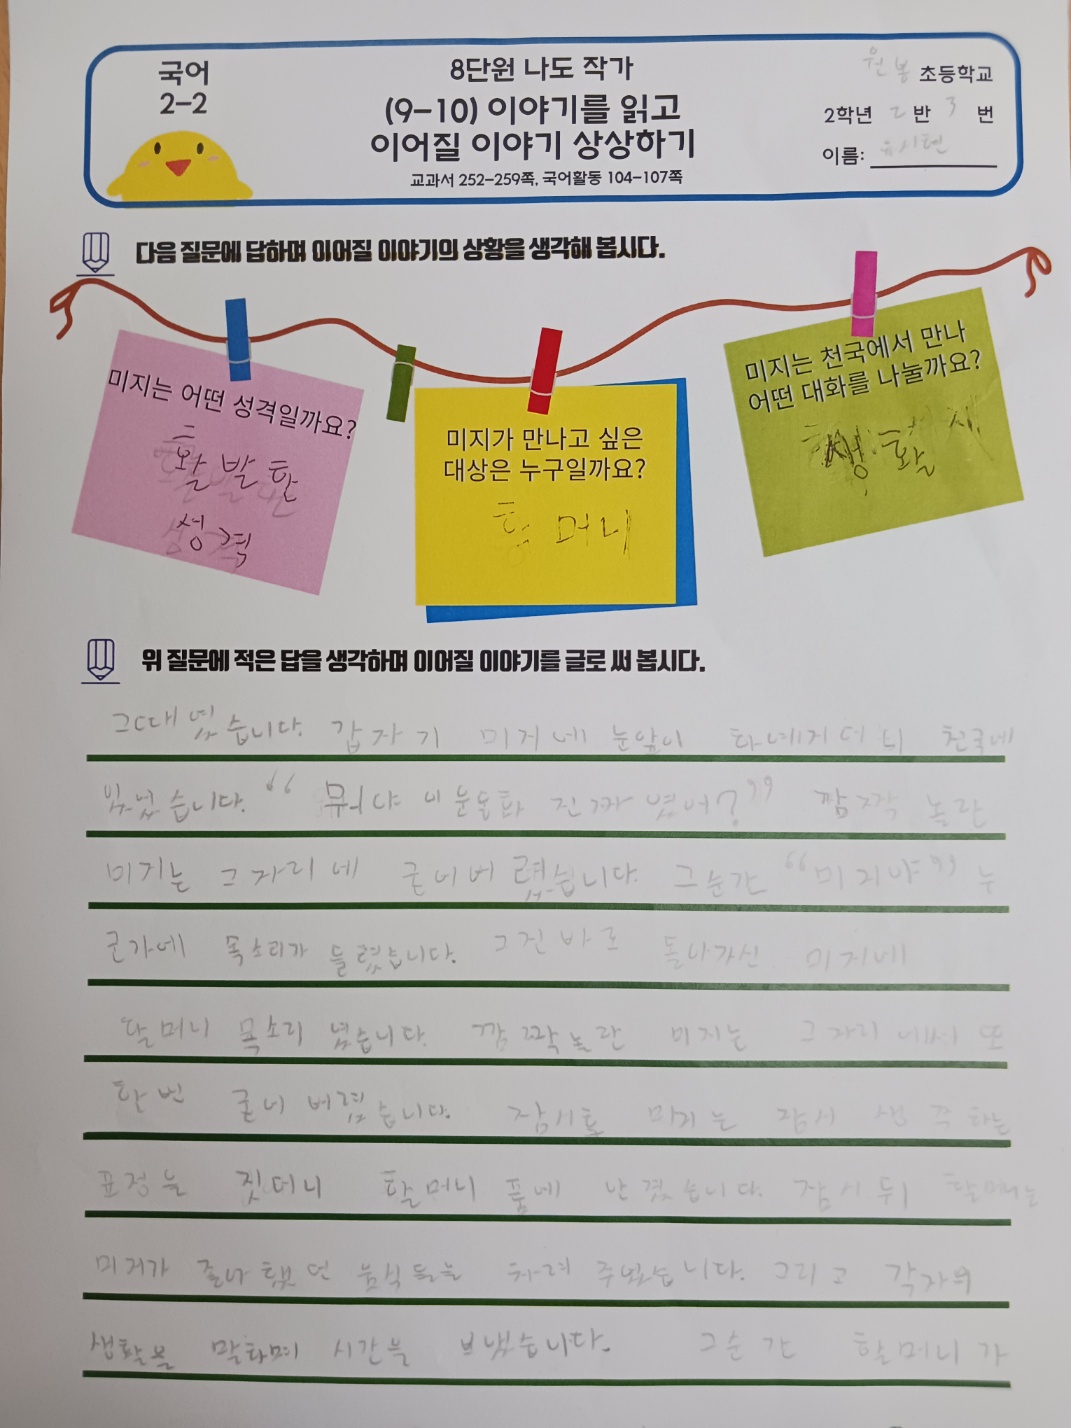 국어
2-2
8단원 나도 작가
(9-10) 이야기를 읽고
이어질 이야기 상상하기
교과서 252-259쪽, 국어활동 104-107쪽
원봉 초등학교
2학년 2 반 3 번
이름: 유시현
다음 질문에 답하며 이어질 이야기의 상황을 생각해 봅시다.
미지는 어떤 성격일까요?
활발한
성격
미지가 만나고 싶은
대상은 누구일까요?
할머니
미지는 천국에서 만나
어떤 대화를 나눌까요?
생활
위 질문에 적은 답을 생각하며 이어질 이야기를 글로 써 봅시다.
그때였습니다. 갑자기 미지에 눈앞이 하예지더니 천국에
있었습니다. “ 뮈야 이 운동화 진짜였어? “ 깜짝 놀란
미지는 그 자리에 굳어버렸습니다. 그순간 “미지야“ 누
군가에 목소리가 들렸습니다. 그건 바로 돌아가신 미지에
할머니 목소리 였습니다. 깜짝놀란 미지는 그 자리에서 또
한번 굳어 버렸습니다. 잠시후 미지는 잠시 생각하는
표정을 짓더니 할머니 품에 안겼습니다. 잠시 뒤 할머니는
미지가 좋아했던 음식들을 차려 주었습니다. 그리고 각자의
생활을 말하며 시간을 보냈습니다. 그순간 할머니가